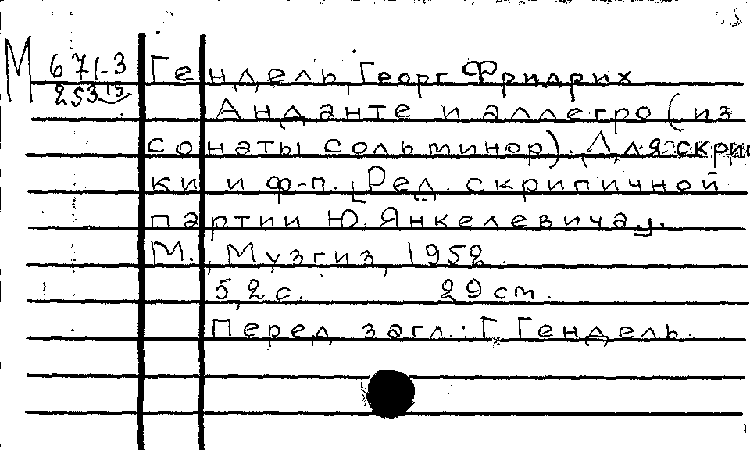 М 671-3 Гендель, Георг Фридрих
253
Анданте и аллегро (из
сонаты соль минор). Для скрип
ки и ф-п. [Ред. скрипичной
партии Ю. Янкелевича].
М., Музгиз, 1952.
5, 2 с. 29 cm.
Перед загл.: Г. Гендель.